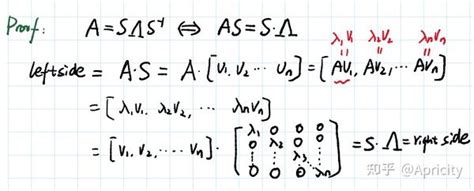 Proof: A = SΛS⁻¹ ⟺ AS = S·Λ
λ₁V₁ λ₂V₂ λₙVₙ
leftside = A·S = A·[V₁ V₂ ⋯ Vₙ] = [AV₁, AV₂, ⋯ AVₙ]
= [λ₁V₁, λ₂V₂, ⋯ λₙVₙ]
= [V₁, V₂, ⋯ Vₙ]· [λ₁ 0 0 0 0 λ₂ 0 0 λ₃ 0 0 λₙ] = S·Λ = right side
知乎 @Apricity